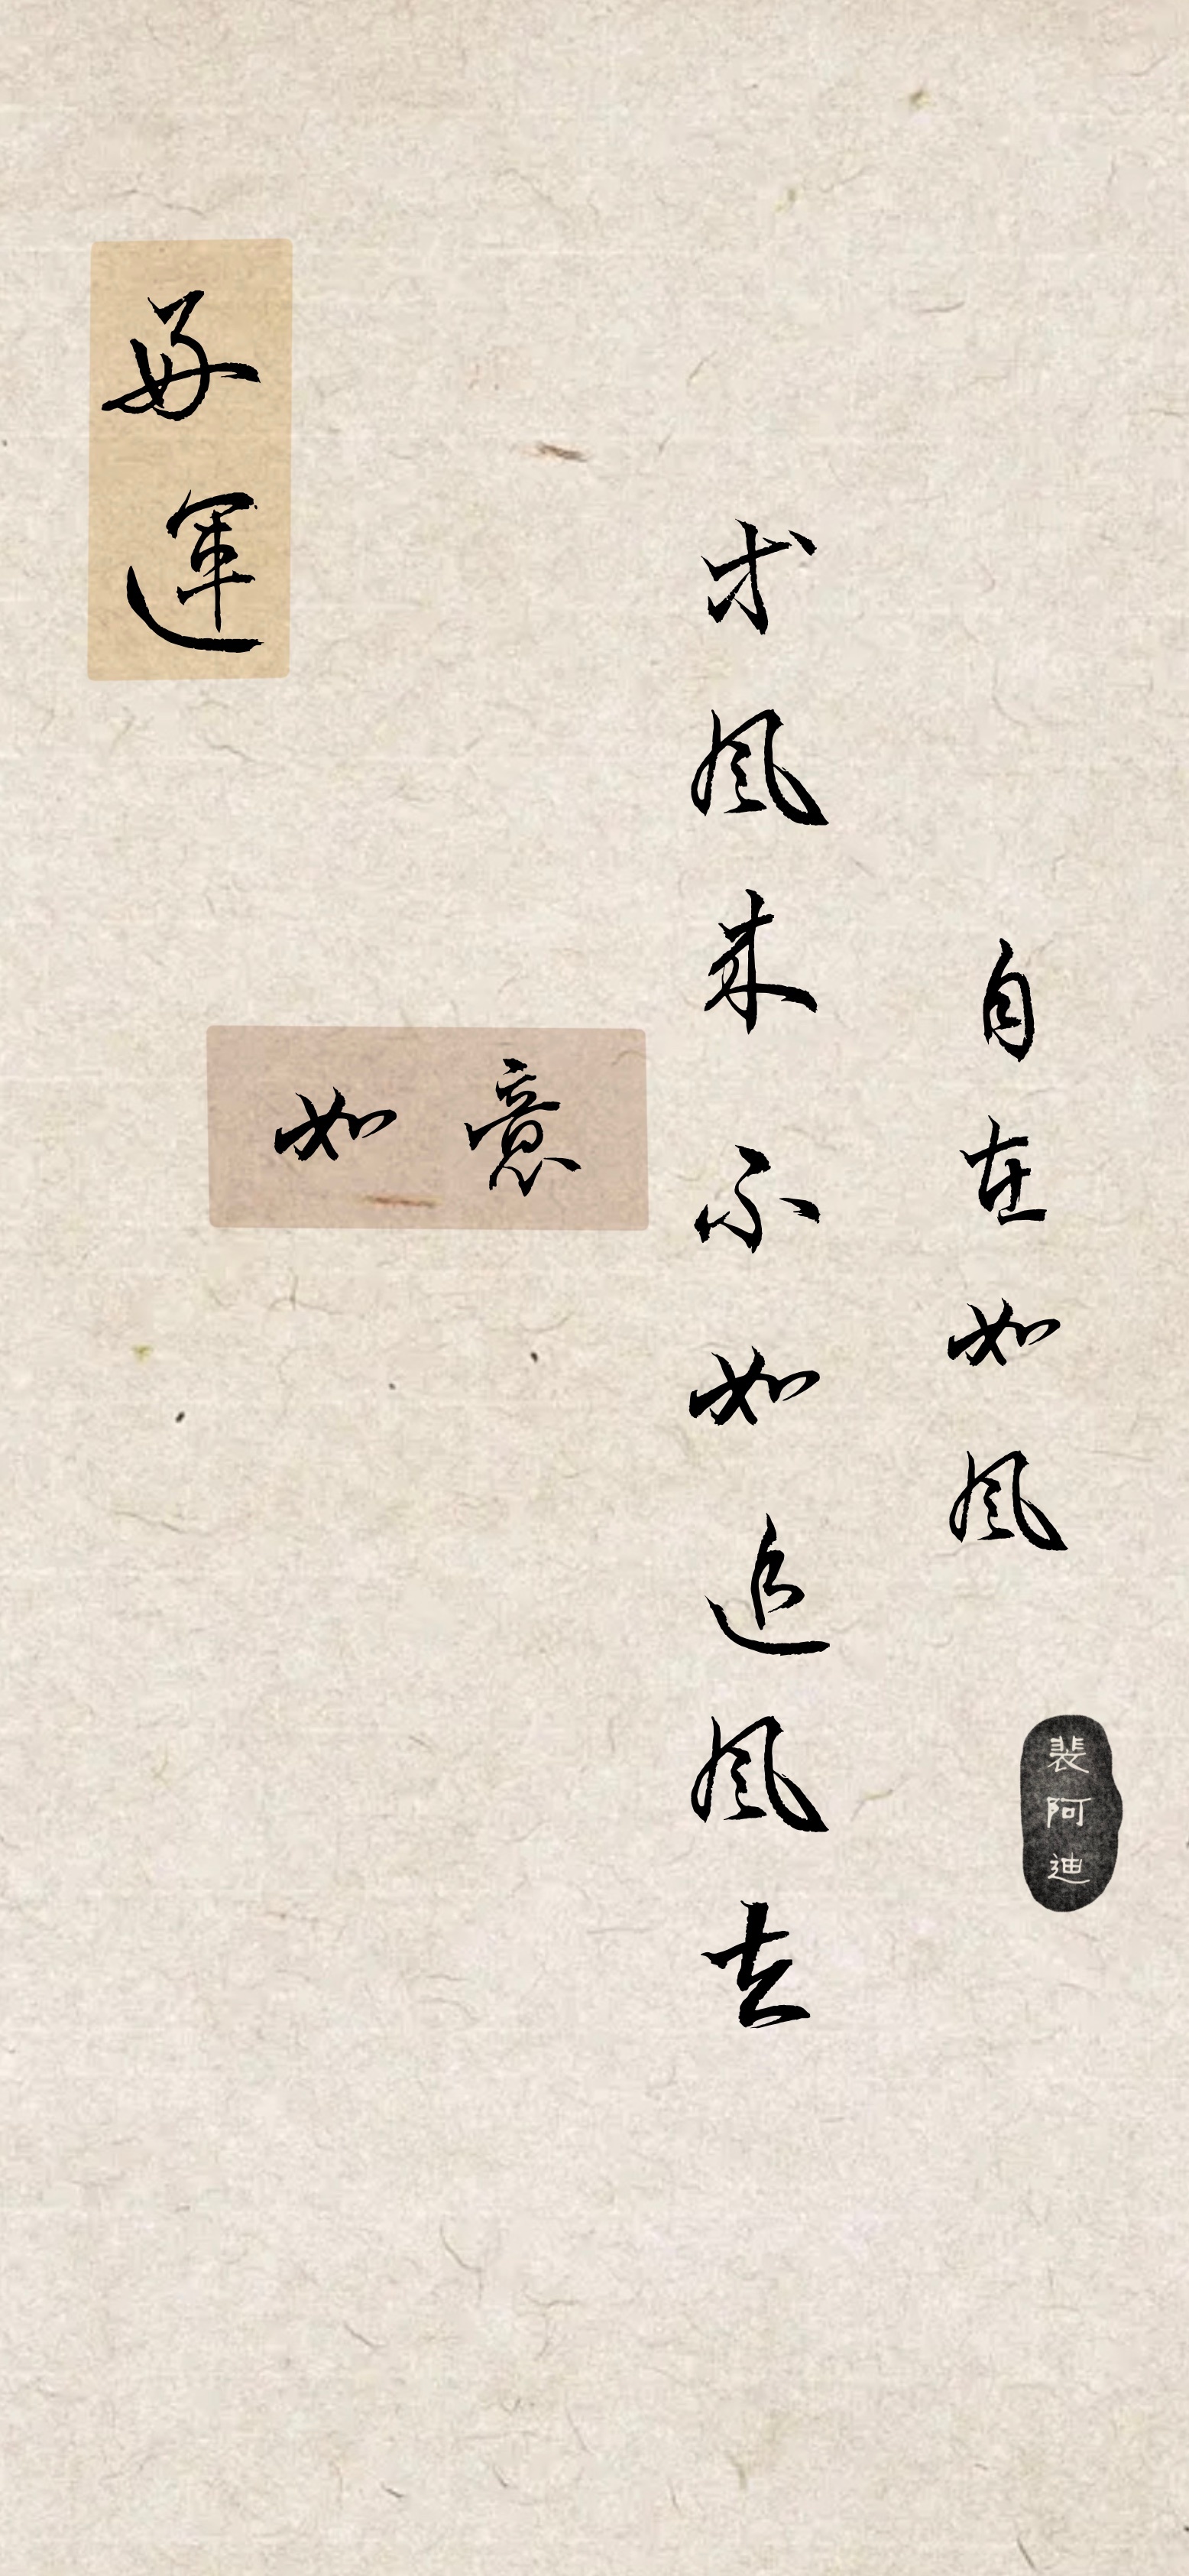 好運
如意
等風来不如追風去
自在如風
裴阿迪